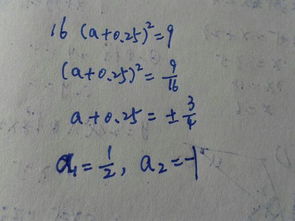 16 (a+0.25)²=9
(a+0.25)²=9/16
a+0.25=±3/4
a₁=1/2, a₂=-1